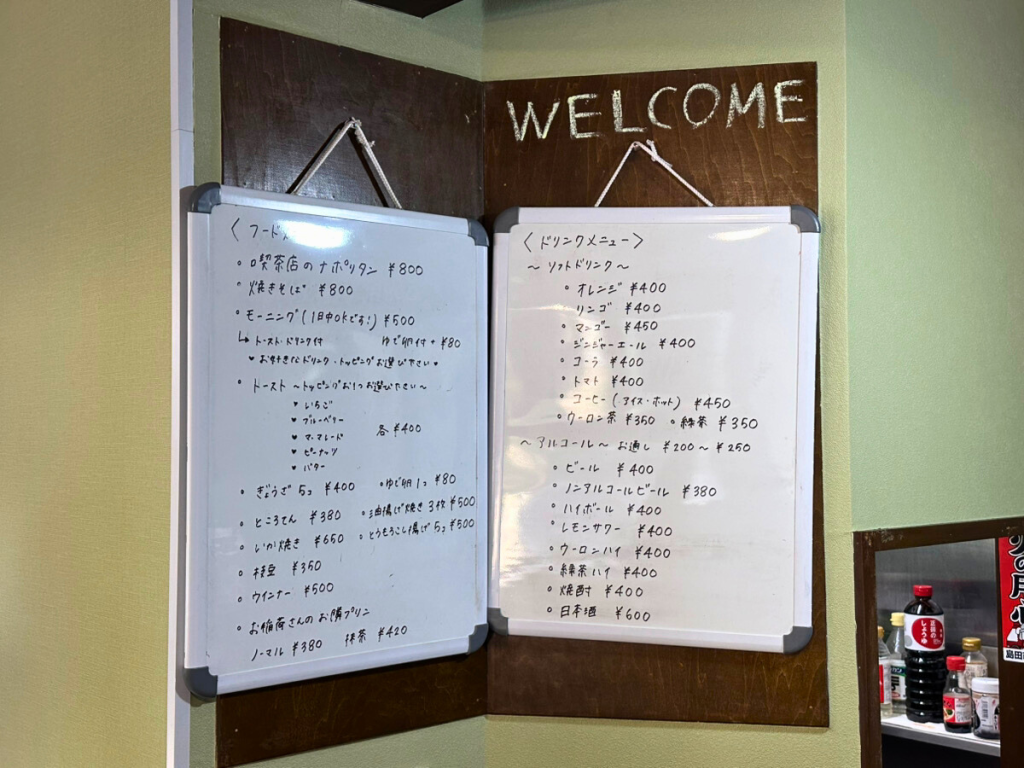 WELCOME
〈フード
・喫茶店のナポリタン ¥800
・焼きそば ¥800
・モーニング(1日中OKです!) ¥500
↳ トースト・ドリンク付 ゆで卵付+¥80
♥お好きなドリンク・トッピングお選び下さい♥
・トースト ～トッピングお1つお選び下さい～
♥いちご
♥ブルーベリー
♥マーマレード 各¥400
♥ピーナッツ
♥バター
・ぎょうざ 5コ ¥400 ・ゆで卵 1コ ¥80
・ところてん ¥380 ・油揚げ焼き 3枚 ¥500
・いか焼き ¥650 ・とうもろこし揚げ 5コ ¥500
・枝豆 ¥350
・ウインナー ¥500
・お稲荷さんのお隣プリン
ノーマル ¥380 抹茶 ¥420
〈ドリンクメニュー〉
～ソフトドリンク～
・オレンジ ¥400
リンゴ ¥400
・マンゴー ¥450
・ジンジャーエール ¥400
・コーラ ¥400
・トマト ¥400
・コーヒー(アイス・ホット) ¥450
・ウーロン茶 ¥350 ・緑茶 ¥350
～アルコール～ お通し ¥200～¥250
・ビール ¥400
・ノンアルコールビール ¥380
・ハイボール ¥400
・レモンサワー ¥400
・ウーロンハイ ¥400
・緑茶ハイ ¥400
・焼酎 ¥400
・日本酒 ¥600
しょうゆ